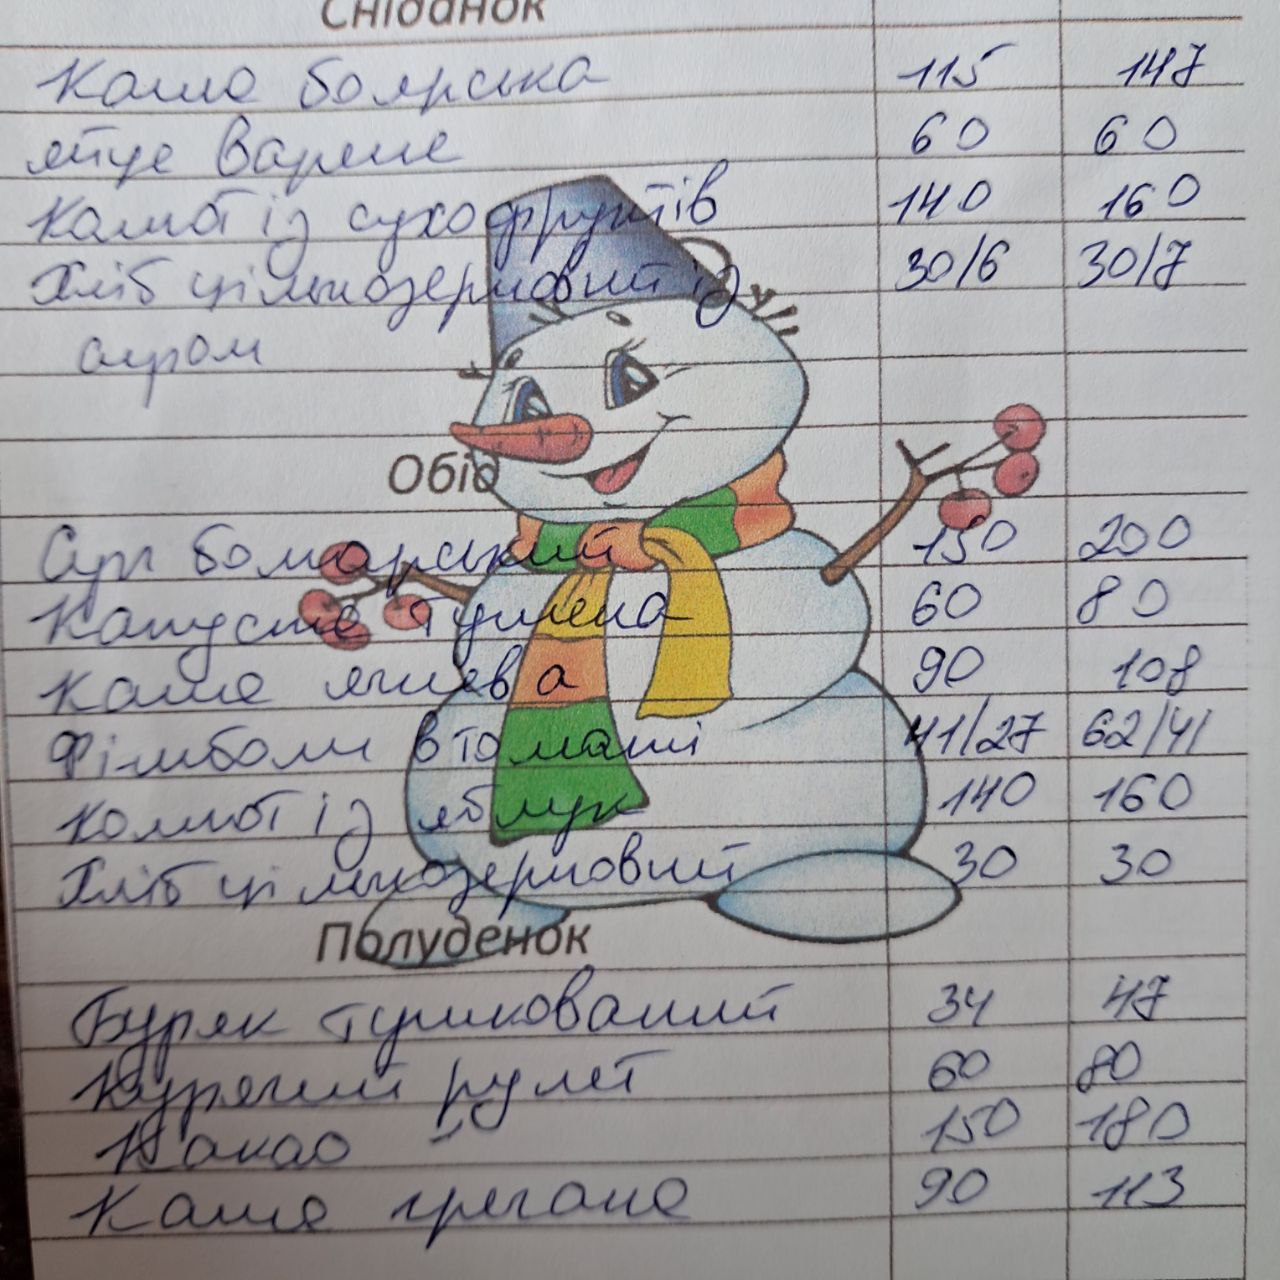 Сніданок
Каша боярська 115 147
яйце варене 60 60
Компот із сухофруктів 140 160
Хліб цільнозерновий із 30/6 30/7
сиром
Обід
Суп болгарський 150 200
Капуста тушена 60 80
Каша ячнева 90 108
Фішболи в томаті 41/27 62/41
Компот із яблук 140 160
Хліб цільнозерновий 30 30
Полуденок
Буряк тушкований 34 47
Курячий рулет 60 80
Какао 150 180
Каша гречана 90 113